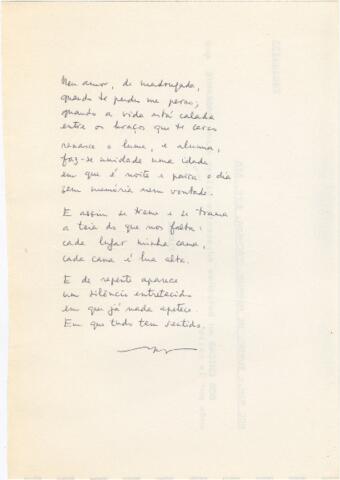 Meu amor, de madrugada,
quando te perdes me
quando a vida está calada
entre os braços que te
renasce o lume, e alumia,
faz-se unidade uma idade
em que é noite e paira o dia
sem memória nem vontade.
E assim se trama e se trama
a teia do que nos falta:
cada lugar minha cama,
cada cama é lua alta.
E de repente aparece
um silêncio entretecido
em que já nada apetece.
Em que tudo tem sentido.